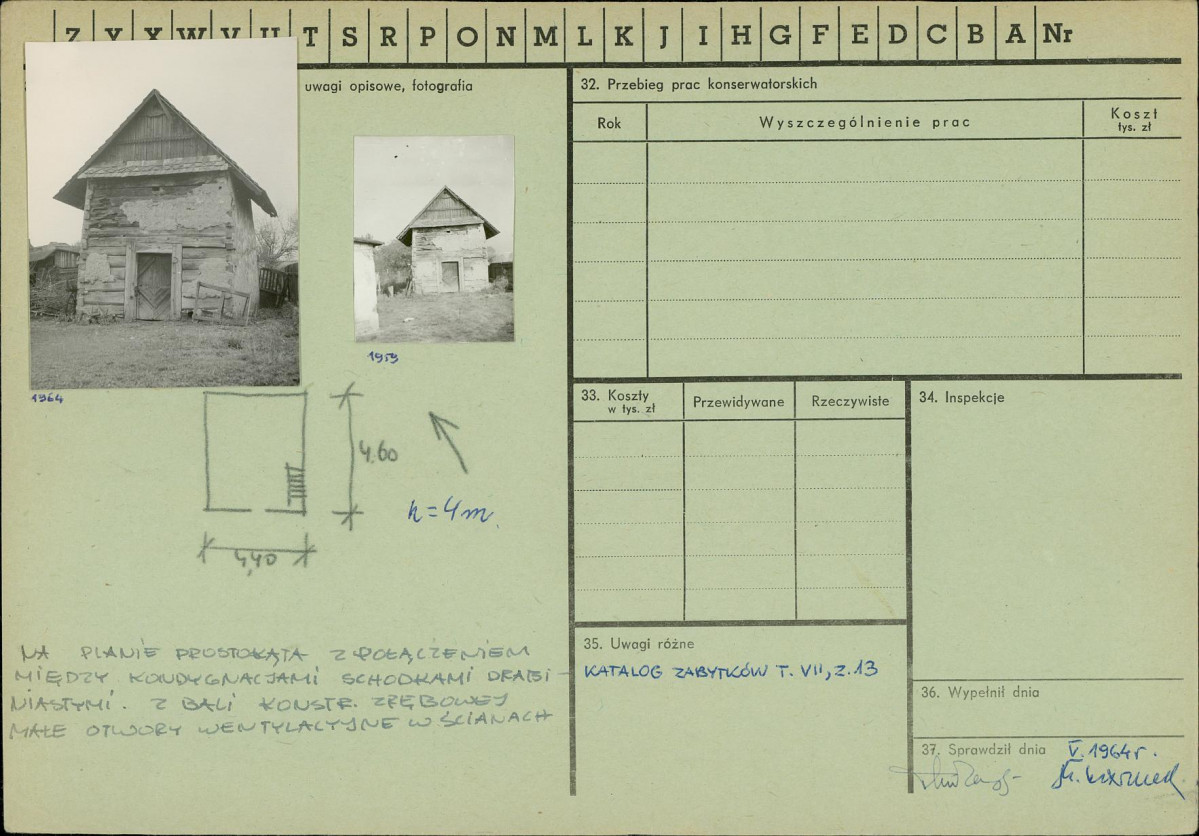 Z Y X W V U T S R P O N M L K J I H G F E D C B A Nr
uwagi opisowe, fotografia
1964
1959
4.60
h = 4m
4,40
NA PLANIE PROSTOKĄTA Z POŁĄCZENIEM
MIĘDZY KONDYGNACJAMI SCHODKAMI DRABI-
NIASTYMI. Z BALI KONSTR. ZRĘBOWEJ
MAŁE OTWORY WENTYLACYJNE W ŚCIANACH
32. Przebieg prac konserwatorskich
Rok
Wyszczególnienie prac
Koszt
tys. zł
33. Koszty
w tys. zł
Przewidywane
Rzeczywiste
34. Inspekcje
35. Uwagi różne
KATALOG ZABYTKÓW T. VII, z. 13
36. Wypełnił dnia
37. Sprawdził dnia
V. 1964 r.